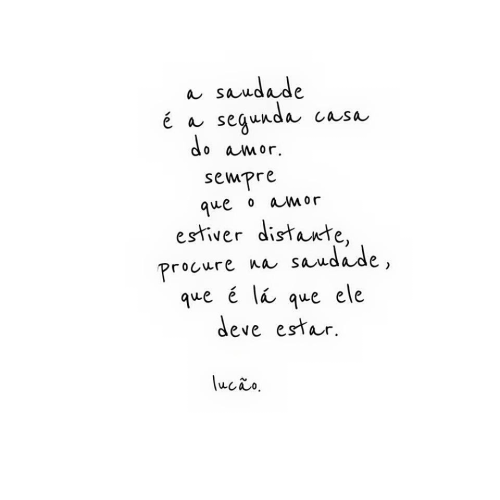 a saudade
é a segunda casa
do amor.
sempre
que o amor
estiver distante,
procure na saudade,
que é lá que ele
deve estar.
lucão.